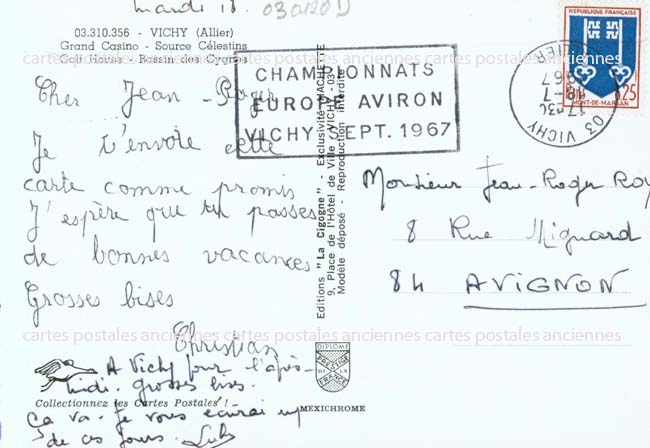 mardi 18.
03a120D
03.310.356 - VICHY (Allier)
Grand Casino - Source Célestins
Golf House - Bassin des Cygnes
cartes postales anciennes cartes postales anciennes cartes postales anciennes
Cher Jean-Roger
Je t'envoie cette
carte comme promis
J'espère que tu passes
de bonnes vacances
Grosses bises
Christian
A Vichy pour l'après-
midi. grosses bises.
Collectionnez les Cartes Postales ! -
Ca va. Je vous écrirai un
de ces jours.
CHAMPIONNATS
EUROPE AVIRON
VICHY SEPT. 1967
Editions "La Cigogne" - Exclusivité HACHETTE
9, Place de l'Hôtel de Ville - VICHY - 03
Modèle déposé - Reproduction interdite
REPUBLIQUE FRANÇAISE
0,25
MONT-DE-MARSAN
03 VICHY
ALLIER
17H30
18-7
1967
Monsieur Jean-Roger Roy
8 Rue Mignard
84 AVIGNON
cartes postales anciennes cartes postales anciennes cartes postales anciennes
DIPLOME
PRESTIGE
DE LA
FRANCE
MEXICHROME